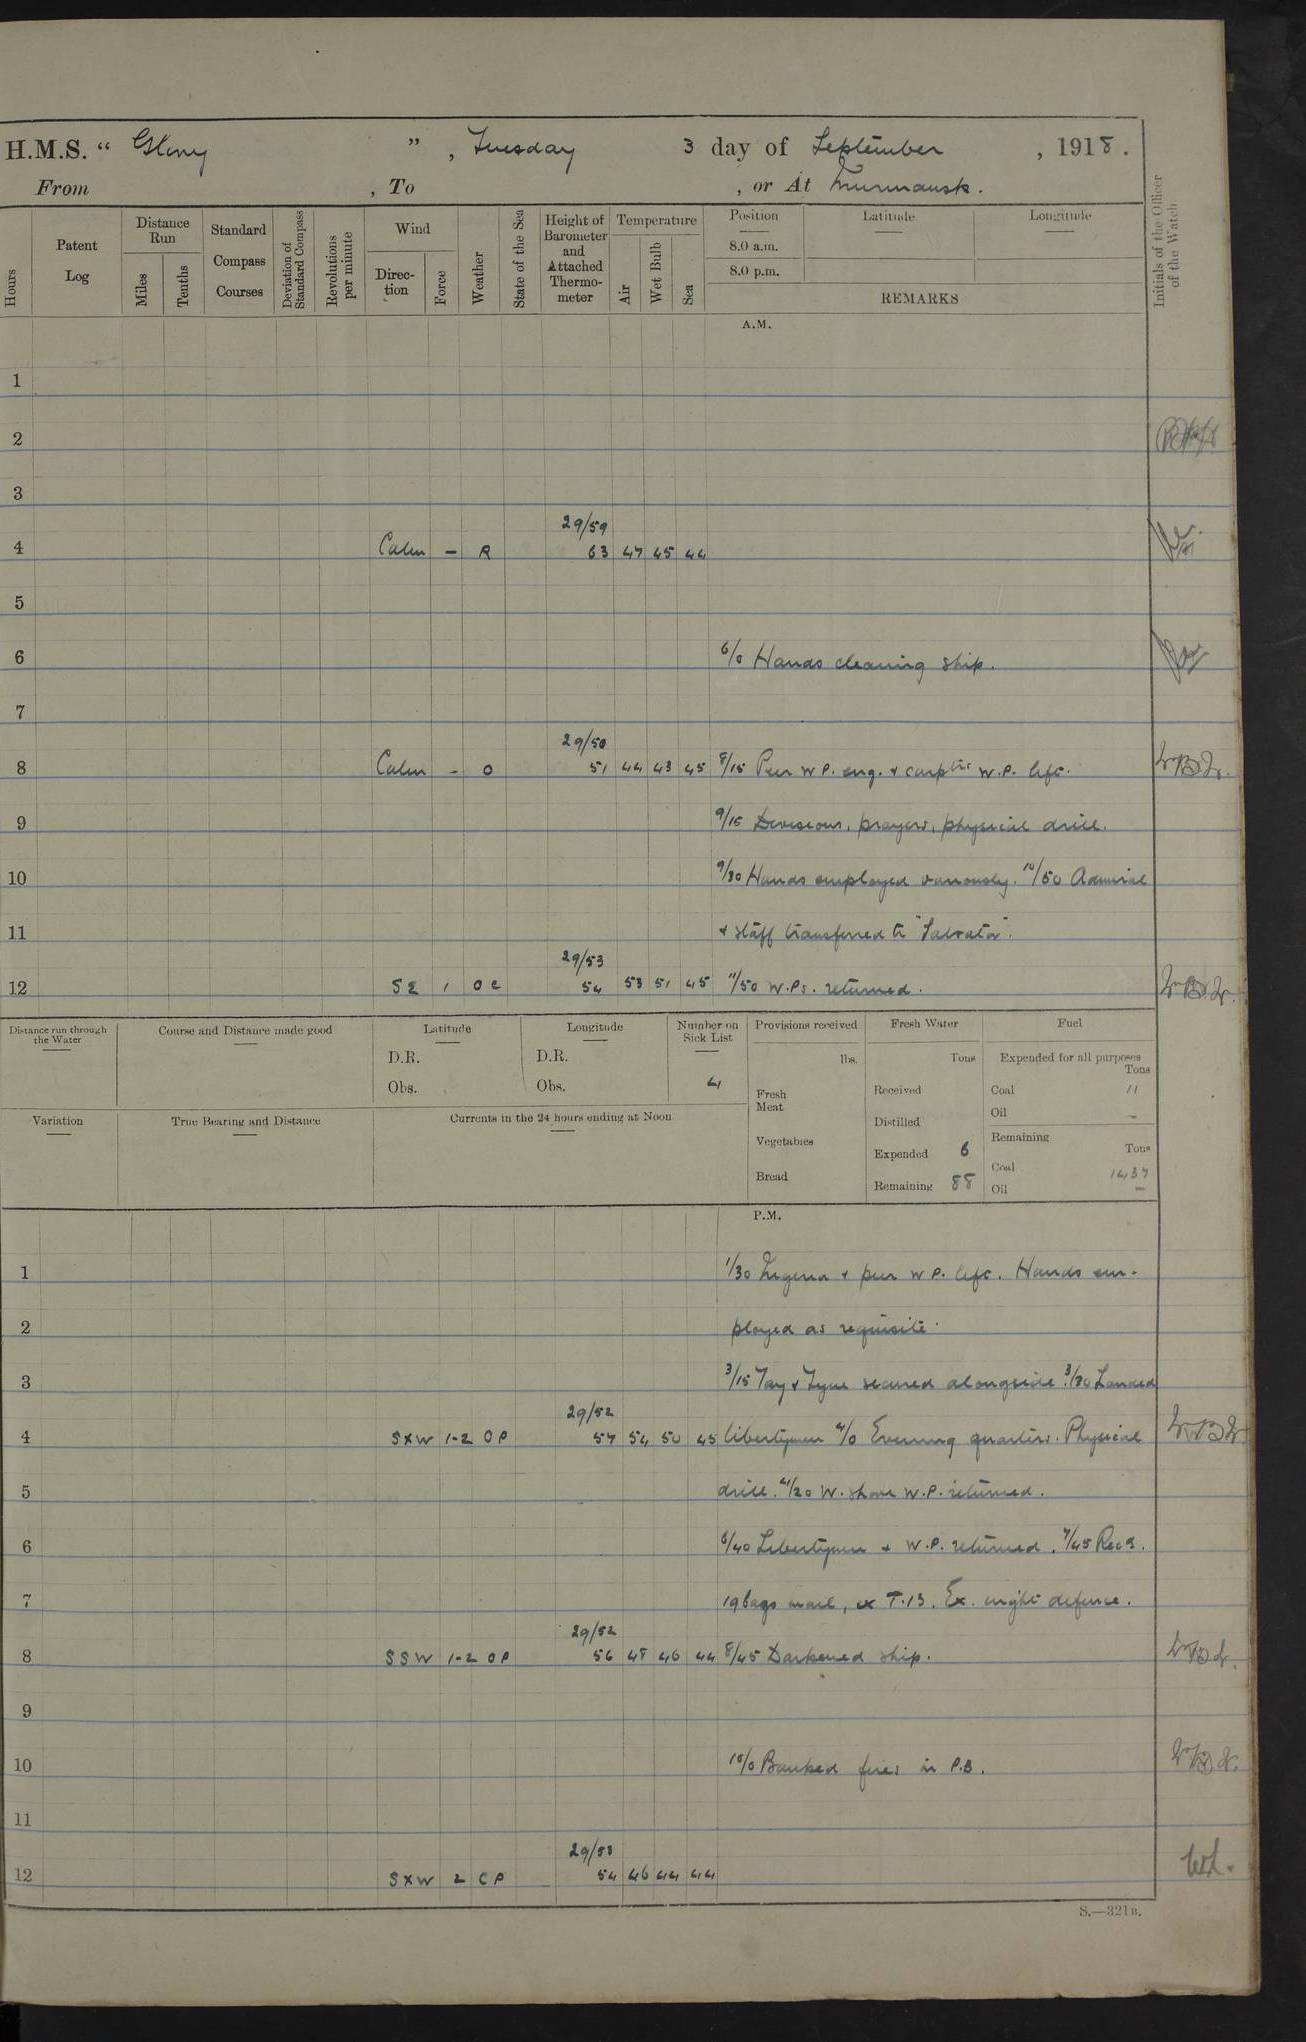 H.M.S. " Glory ", Tuesday 3 day of September, 1918.
From , To , or At Murmansk.
Hours
Patent Log
Distance Run
Miles
Tenths
Standard Compass Courses
Deviation of Standard Compass
Revolutions per minute
Wind
Direction
Force
Weather
State of the Sea
Height of Barometer and Attached Thermometer
Temperature
Air
Wet Bulb
Sea
Position
8.0 a.m.
8.0 p.m.
Latitude
Longitude
REMARKS
Initials of the Officer of the Watch
A.M.
1
2
3
29/59
4 Calm — R 63 47 45 44
5
6 6/0 Hands cleaning ship.
7
29/50
8 Calm - O 51 44 43 45 8/15 Pier W.P. eng. & carptrs W.P. left.
9 9/15 Divisions, prayers, physical drill.
10 9/30 Hands employed variously. 10/50 Admiral
11 & staff transferred to "Salvator".
29/53
12 SE 1 OC 54 53 51 45 11/50 W.Ps. returned.
Distance run through the Water
Course and Distance made good
Latitude
D.R.
Obs.
Longitude
D.R.
Obs.
Number on Sick List
4
Provisions received
lbs.
Fresh Meat
Vegetables
Bread
Fresh Water
Tons
Received
Distilled
Expended 6
Remaining 88
Fuel
Expended for all purposes
Tons
Coal 11
Oil —
Remaining
Tons
Coal 1437
Oil —
Variation
True Bearing and Distance
Currents in the 24 hours ending at Noon
P.M.
1 1/30 & pier W.P. left. Hands em-
2 ployed as requisite.
3 3/15 Tay & Tyne secured alongside. 3/30 Landed
29/52
4 SXW 1-2 OP 57 54 50 45 libertymen 4/0 Evening quarters. Physical
5 drill. 4/20 W. shore W.P. returned.
6 6/40 Libertymen & W.P. returned. 7/45 Recd.
7 19 bags mail, ex T.13. Ex. night defence.
29/52
8 SSW 1-2 OP 56 48 46 44 8/45 Darkened ship.
9
10 10/0 Banked fires in P.B.
11
29/53
12 SXW 2 CP 54 46 44 44
S.—321B.